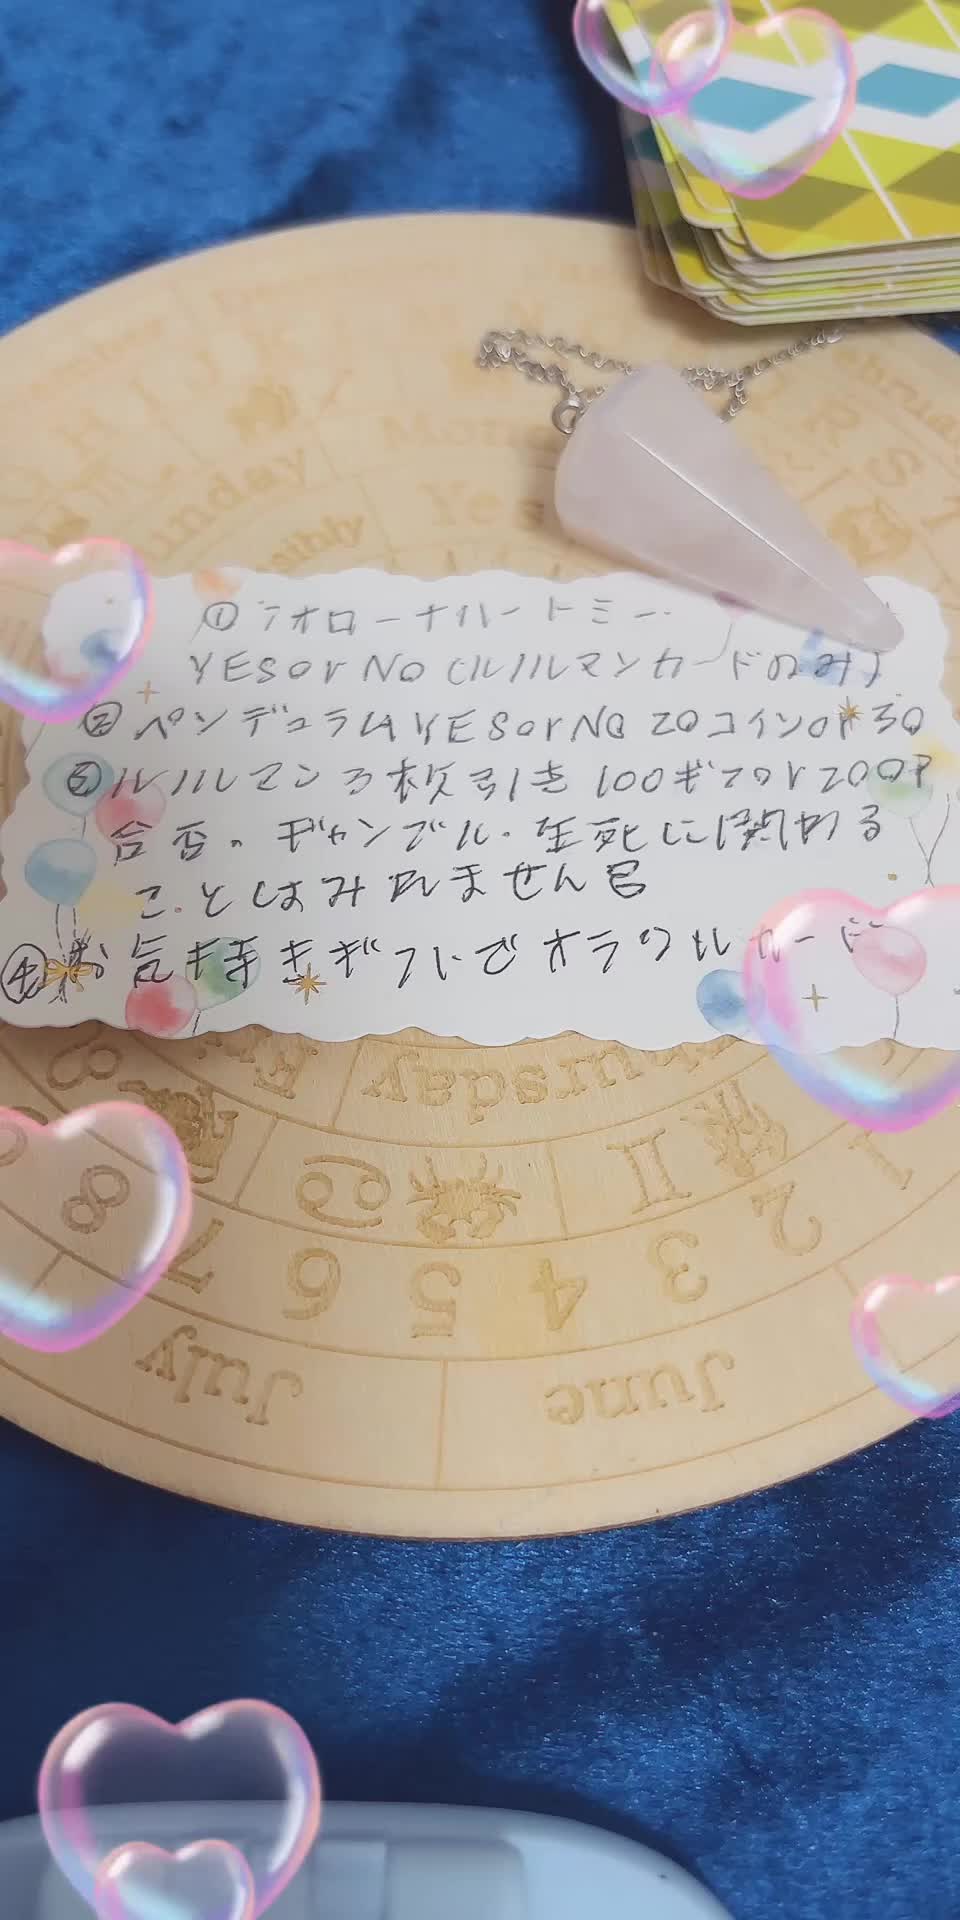 ①フオローナハートミー
YESorNO(ルノルマンカードのみ)
②ペンデュラムYESorNO20コインor30
③ルノルマン3枚引き100ギフトor200P
合否。ギャンブル・生死に関わる
ことはみれません
④お気持きギフトでオラクルカード
Sunday
Mon
Ye
R
S
Thursday
Fri
8
7
6
5
4
3
2
1
July
June